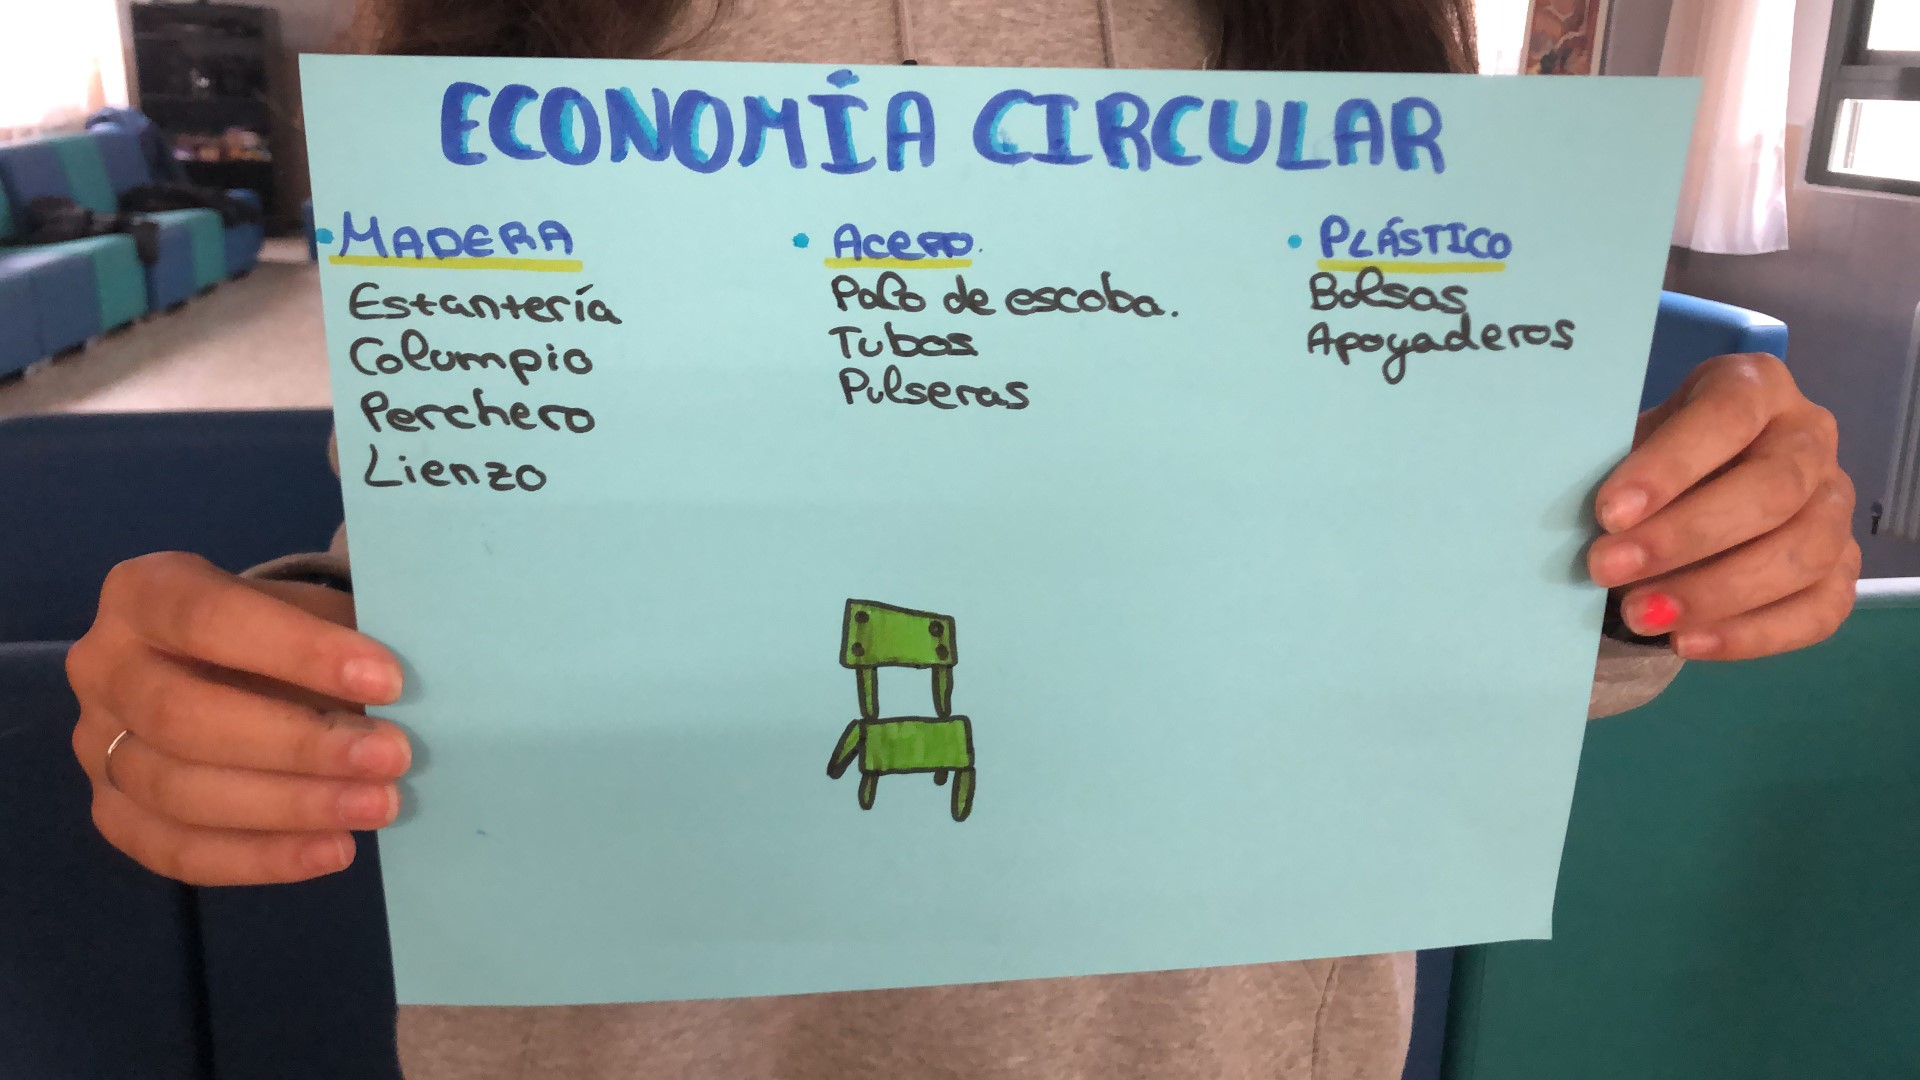 ECONOMÍA CIRCULAR
• MADERA
Estantería
Columpio
Perchero
Lienzo
• ACERO.
Palo de escoba.
Tubos
Pulseras
• PLÁSTICO
Bolsas
Apoyaderos